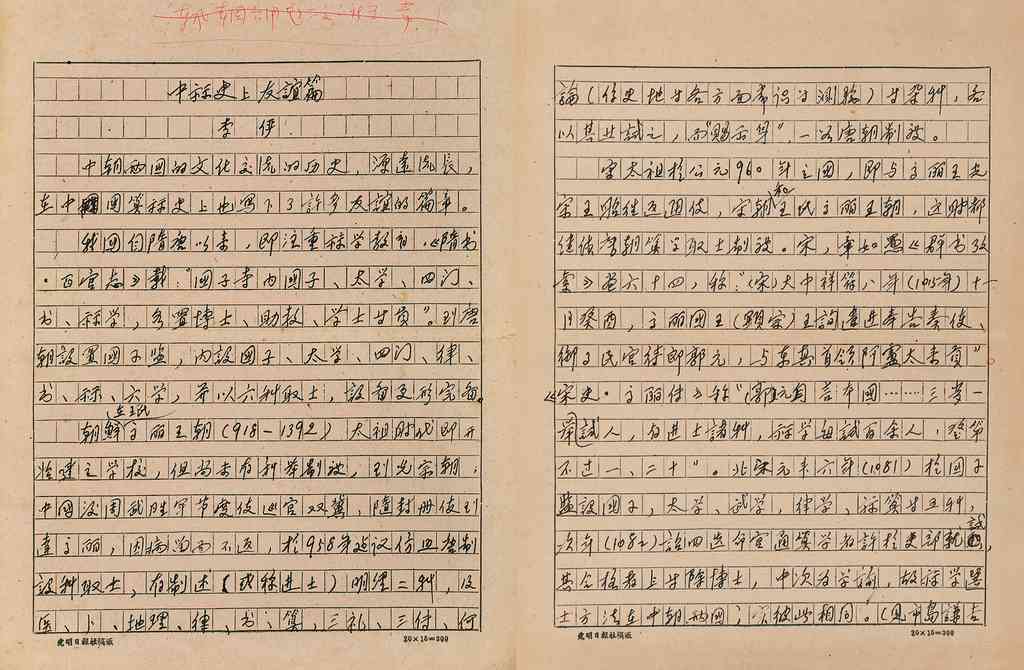 中祘史上友誼篇
李伊
中朝两国的文化交流的历史，源遠流長，
在中國算祘史上也写下了許多友誼的篇章。
我国自隋唐以来，即注重祘学教育。《隋书
·百官志》載：“國子寺内國子、太学、四门、
书、祘学，各置博士、助教、学士等員”。到唐
朝設置國子监，内設國子、太学、四门、律、
书、祘、六学，并以六科取士，設备更形完备。
朝鮮在王氏高丽王朝（918－1392）太祖时代即开
始建立学校，但尚未有科举制波，到光宗朝，
中國後周武胜军节度使巡官双冀，隨封册使到
達高丽，因病留而不返，於958年建议仿照唐制
設科取士，有制述（或称進士）明经二科，及
医、卜、地理、律、书、算、三礼、三传、何
論（任史地等各方面常识的测驗）等杂科，各
以其业試之，而“賜出身”，一如唐朝制波。
宋太祖於公元960年立國，即与高丽王光
宗王昭往返通使，宋朝和王氏高丽王朝，这时都
继续唐朝算学取士制波。宋，章如愚《群书攷
索》卷六十四，称：“（宋）大中祥符八年（1015年）十一
月癸酉，高丽國王（顕宗）王詢遣進奉告奏使、
御事民官侍郎郭元，与东真首領阿盧太来貢”
《宋史·高丽传》称“（郭元）自言本國……三岁一
舉試人，有進士諸科，祘学每試百余人，登第
不过一、二十”。北宋元丰六年（1081）於國子
监設國子，太学，武学，律学，祘算等五科，
次年（1082）詔四选命官通算学者許於吏部就試，
其合格者上等除博士，中次为学諭，故祘学选
士方法在中朝两国，以彼此相同。（見中島謙吉
光明日报社稿紙
20×15＝300
光明日报社稿紙
20×15＝300